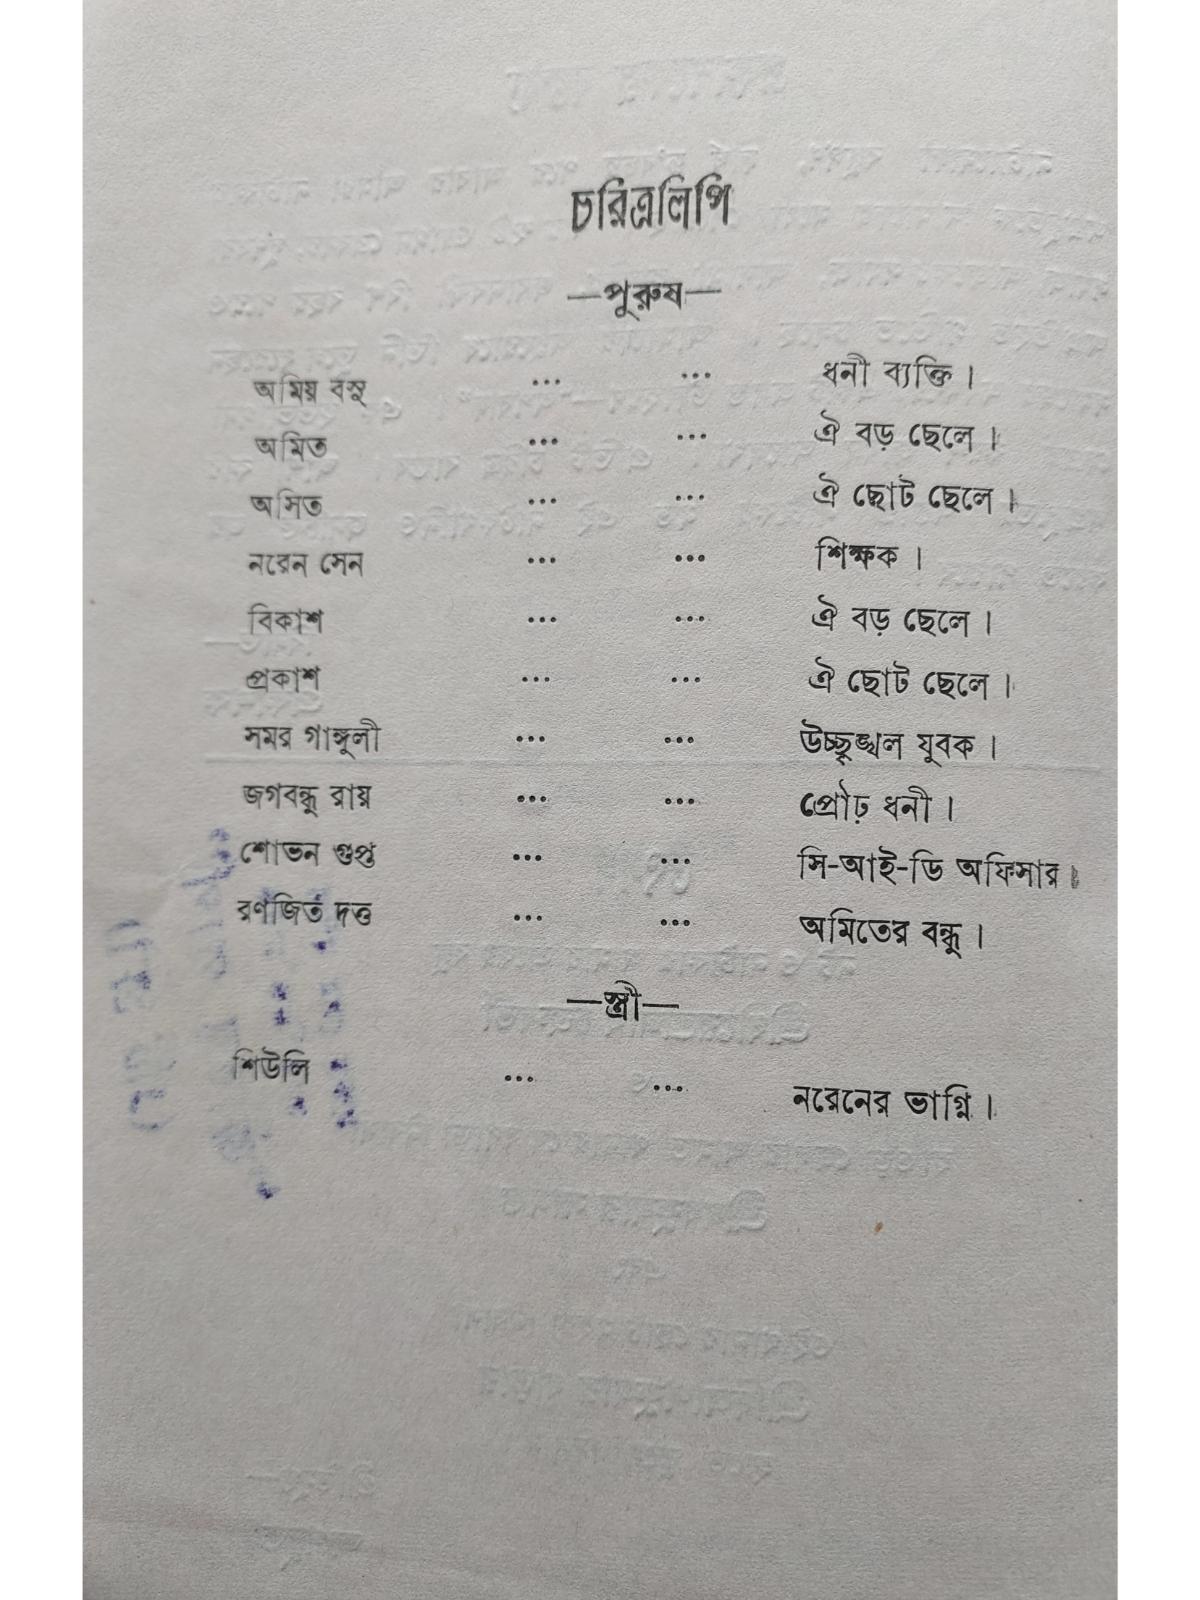 চরিত্রলিপি
—পুরুষ—
অমিয় বসু ... ... ধনী ব্যক্তি।
অমিত ... ... ঐ বড় ছেলে।
অসিত ... ... ঐ ছোট ছেলে।
নরেন সেন ... ... শিক্ষক।
বিকাশ ... ... ঐ বড় ছেলে।
প্রকাশ ... ... ঐ ছোট ছেলে।
সমর গাঙ্গুলী ... ... উচ্ছৃঙ্খল যুবক।
জগবন্ধু রায় ... ... প্রৌঢ় ধনী।
শোভন গুপ্ত ... ... সি-আই-ডি অফিসার।
রণজিত দত্ত ... ... অমিতের বন্ধু।
—স্ত্রী—
শিউলি ... ... নরেনের ভাগ্নি।